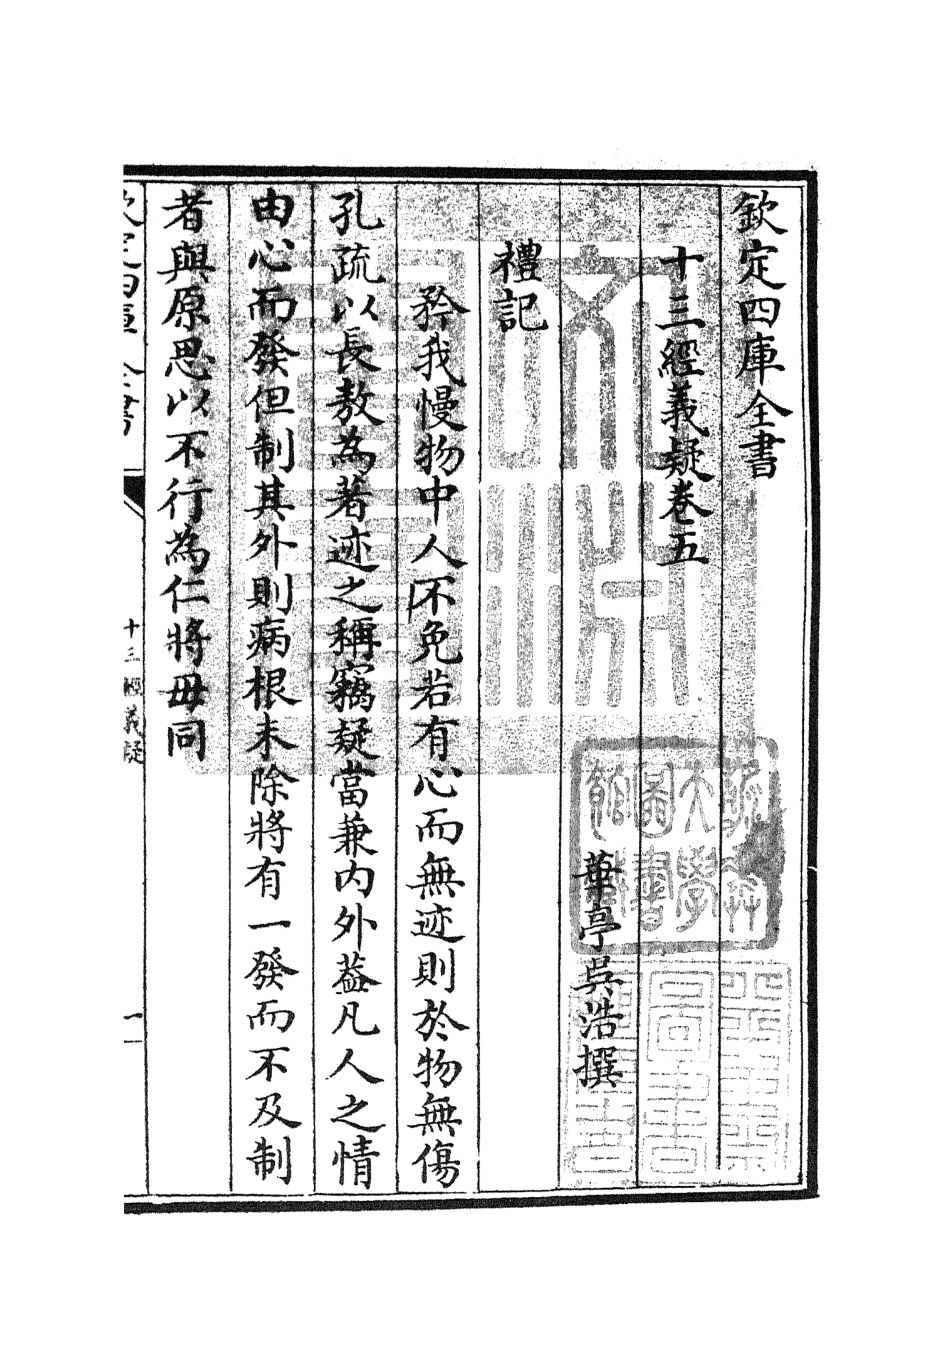 欽定四庫全書
十三經義疑卷五
華亭吳浩撰
禮記
矜我慢物中人不免若有心而無迹則於物無傷
孔疏以長敖為著迹之稱竊疑當兼内外葢凡人之情
由心而發但制其外則病根未除將有一發而不及制
者與原思以不行為仁將毋同
欽定四庫全書
十三經義疑
一